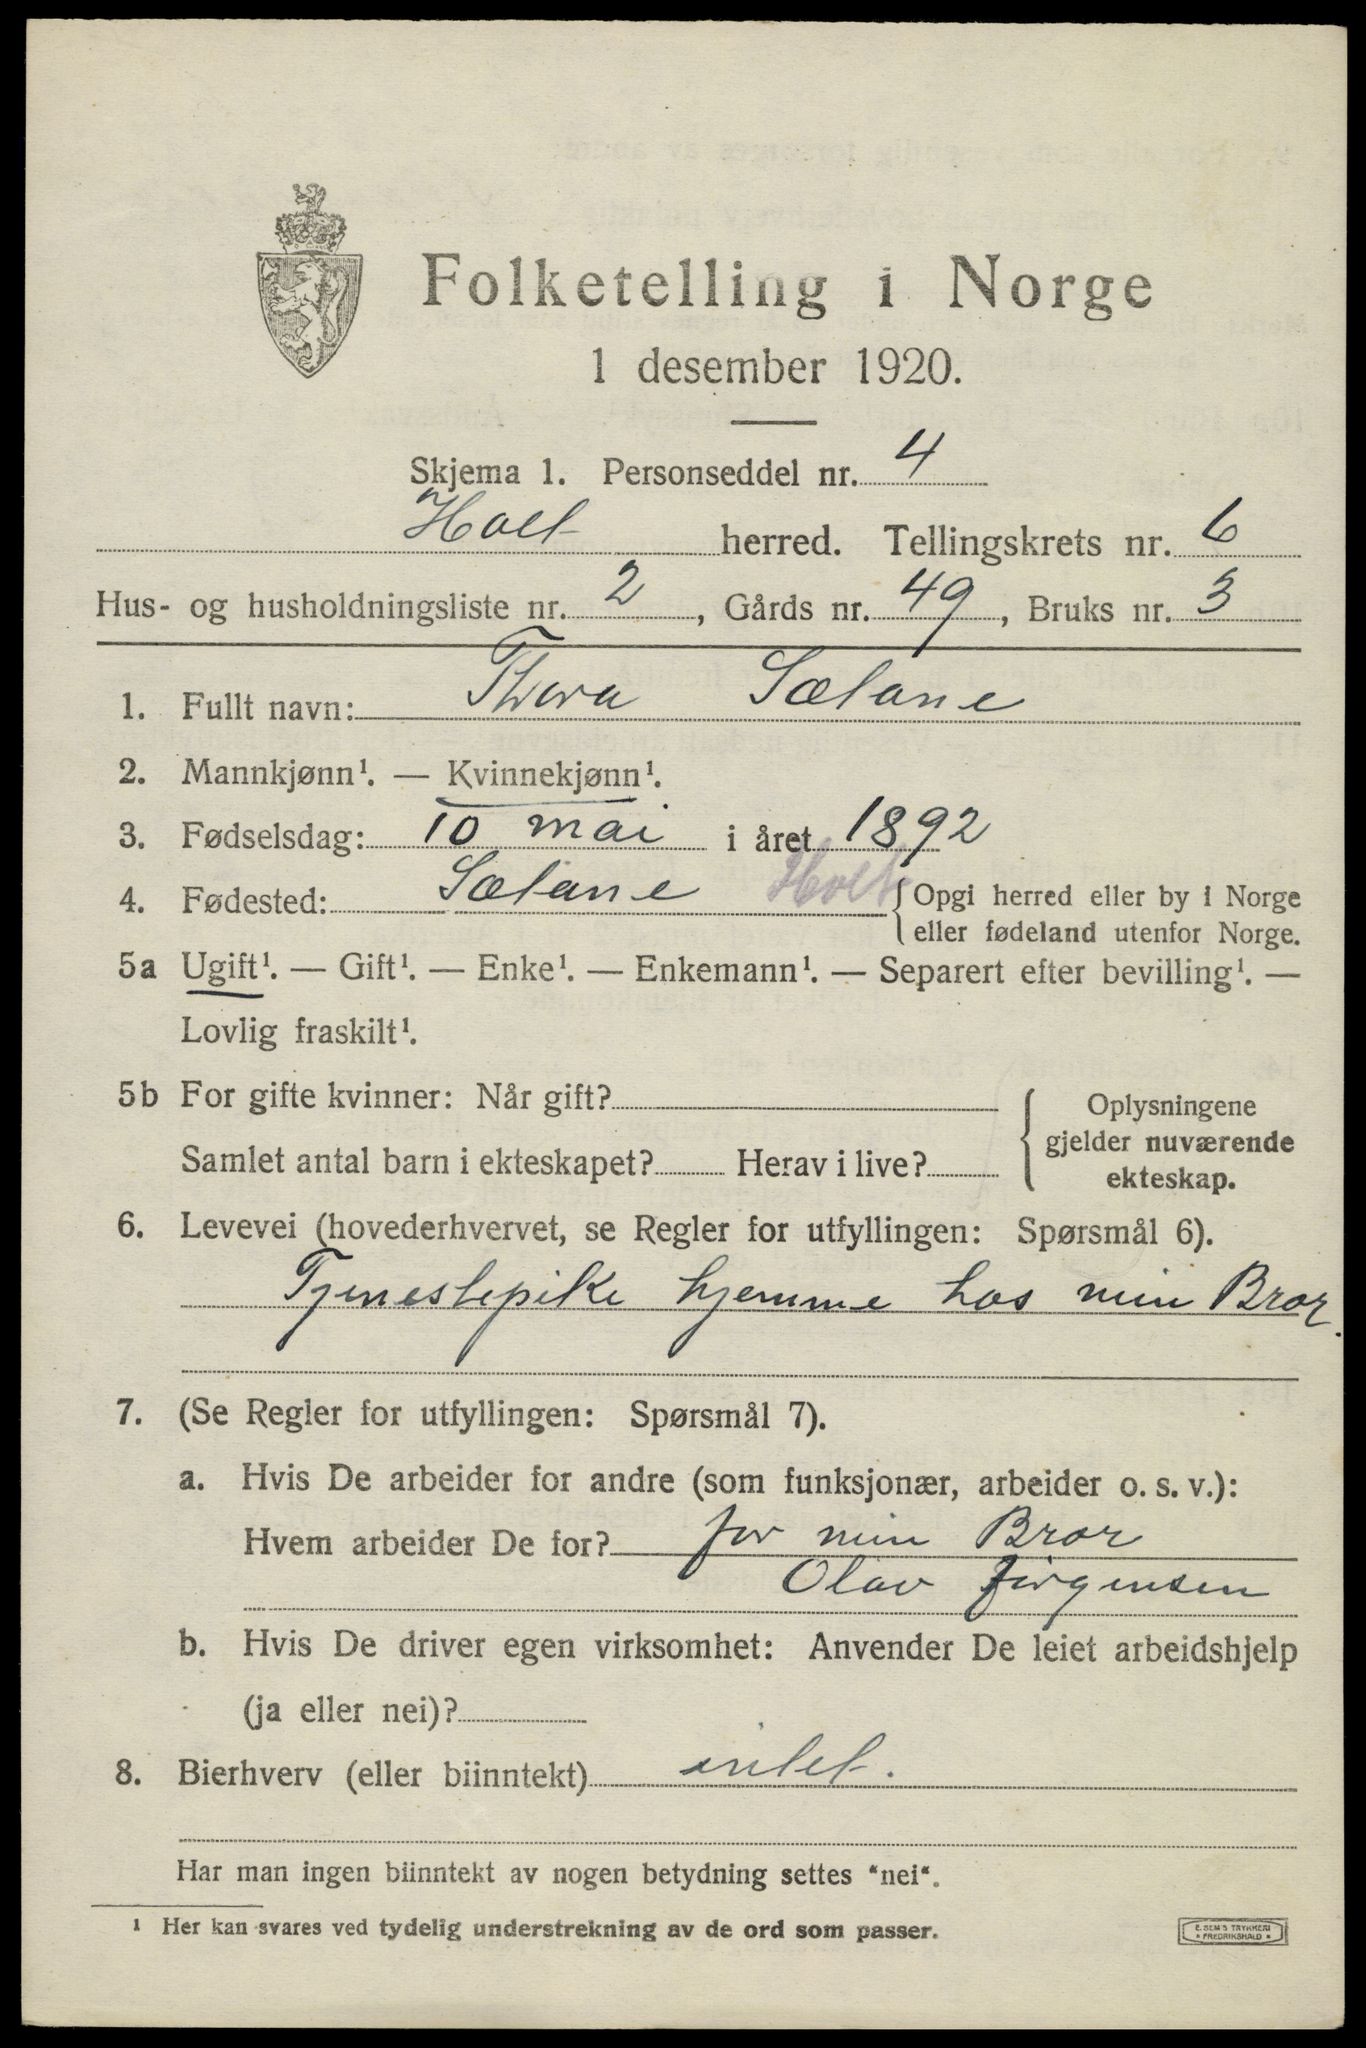 Folketelling i Norge
1 desember 1920.
Skjema 1. Personseddel nr. 4
Holt herred. Tellingskrets nr. 6
Hus- og husholdningsliste nr. 2, Gårds nr. 49, Bruks nr. 3
1. Fullt navn: Thora Sælane
2. Mannkjønn¹. — Kvinnekjønn¹.
3. Fødselsdag: 10 mai i året 1892
4. Fødested: Sælane Holt { Opgi herred eller by i Norge
eller fødeland utenfor Norge.
5a Ugift¹. — Gift¹. — Enke¹. — Enkemann¹. — Separert efter bevilling¹. —
Lovlig fraskilt¹.
5b For gifte kvinner: Når gift?
Samlet antal barn i ekteskapet? Herav i live?
Oplysningene
gjelder nuværende
ekteskap.
6. Levevei (hovederhvervet, se Regler for utfyllingen: Spørsmål 6).
Tjenestepike hjemme hos min Bror.
7. (Se Regler for utfyllingen: Spørsmål 7).
a. Hvis De arbeider for andre (som funksjonær, arbeider o. s. v.):
Hvem arbeider De for? for min Bror
Olav Jørgensen
b. Hvis De driver egen virksomhet: Anvender De leiet arbeidshjelp
(ja eller nei)?
8. Bierhverv (eller biinntekt) intet.
Har man ingen biinntekt av nogen betydning settes "nei".
¹ Her kan svares ved tydelig understrekning av de ord som passer.
E. SEM'S TRYKKERI
* FREDRIKSHALD *